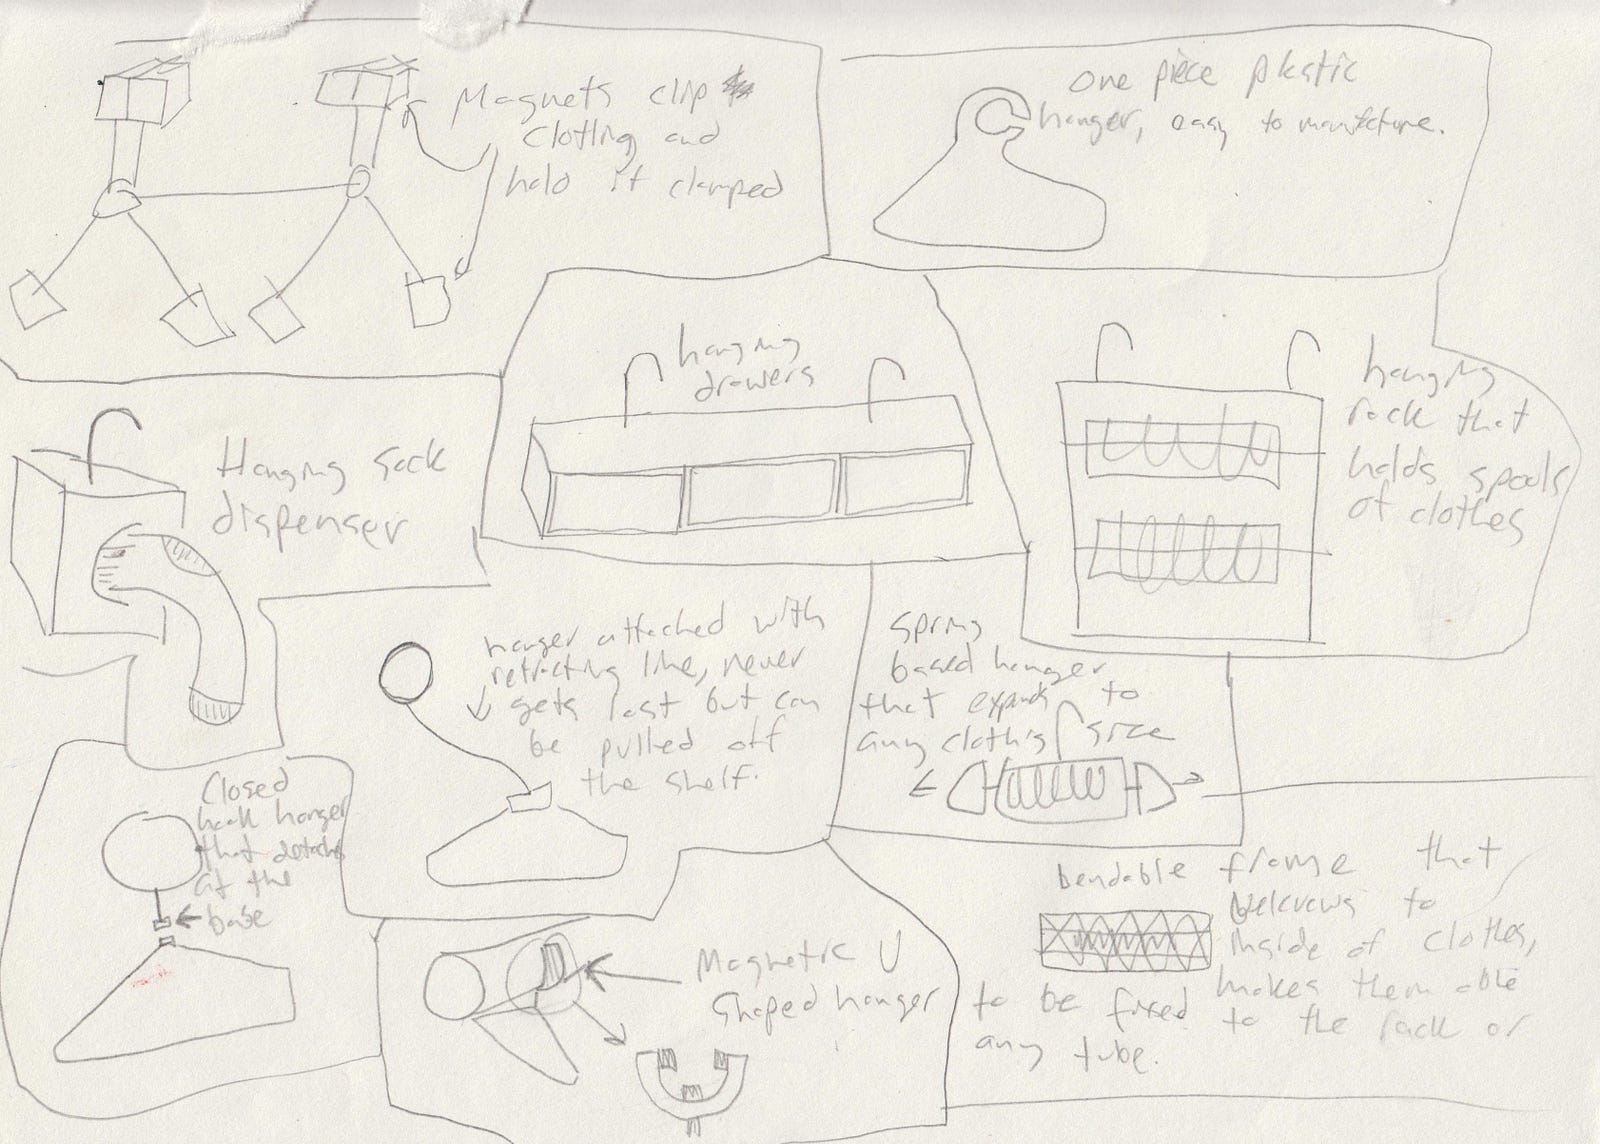 Magnets clip
clothing and
hold it clamped
one piece plastic
hanger, easy to manufacture.
hanging
drawers
hanging
rack that
holds spools
of clothes
Hanging sock
dispenser
hanger attached with
retracting line, never
gets lost but can
be pulled off
the shelf.
spring
based hanger
that expands to
any clothing size
Closed
hook hanger
that detaches
at the
base
Magnetic U
shaped hanger
bendable frame that
velcrows to
inside of clothes,
makes them able
to be fixed to the rack or
any tube.